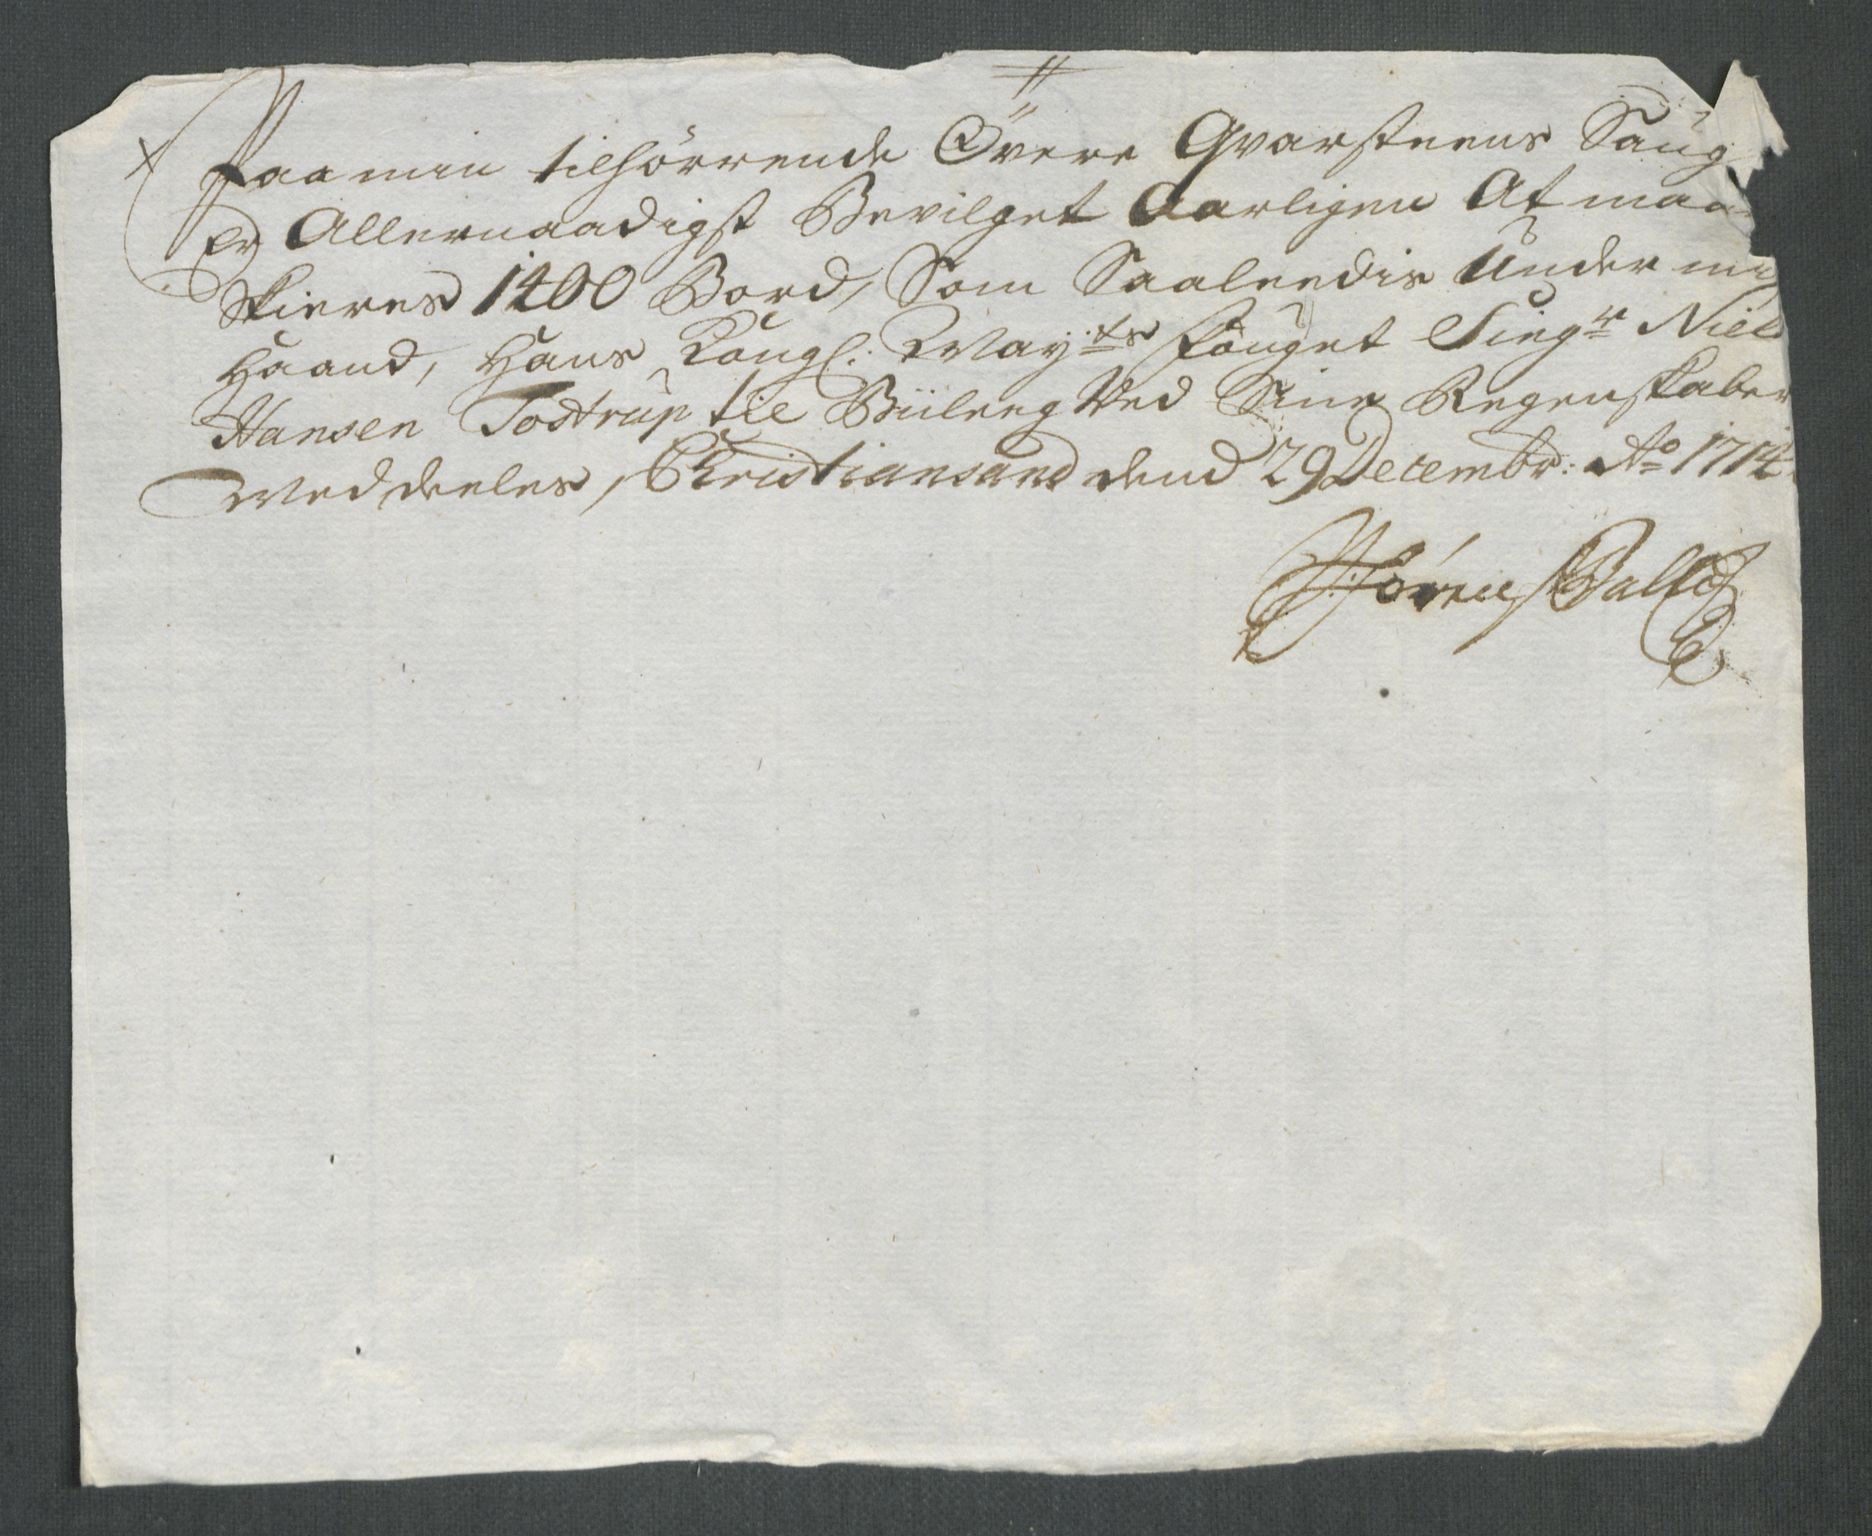 Paa min tilhörrende Övere Qvarsteens Saug
Er Allernaadigst Bevilget Aarligen At maa
Skieres 1400 Bord, Som Saaleedis Under min
Haand, Hans Kongl: May:ts Fouget Siegr Niels
Hansen Tostrup til Biileeg Ved Sine Regenskaber
Meddeeles, Christiansand dend 29 Decembr: Ao 1714
Sören